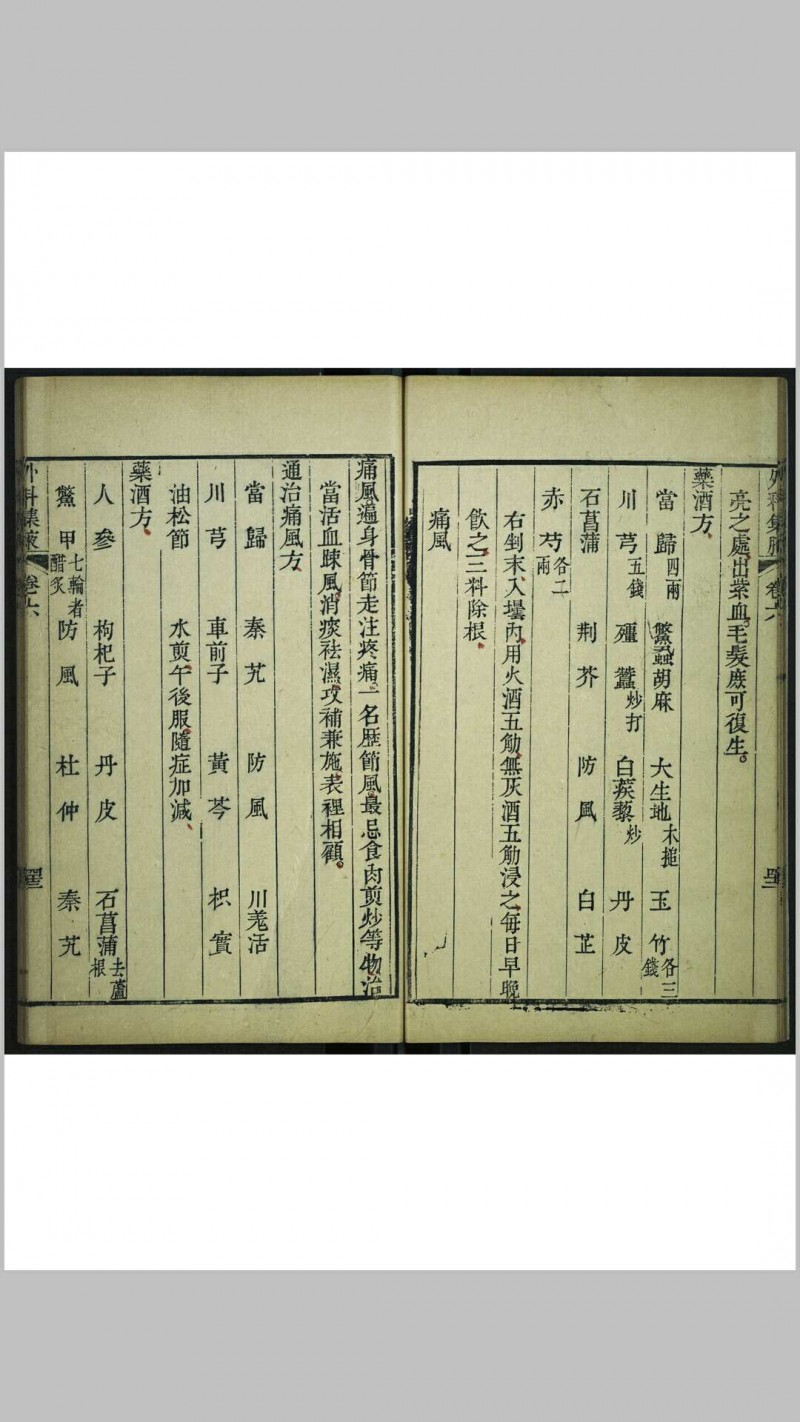 亮之處。出紫血。毛髮庶可復生。
藥酒方、
當歸四兩 鱉蝨胡麻 大生地木搥 玉竹各三錢
川芎五錢 殭蠶炒打 白蒺藜炒 丹皮
石菖蒲 荆芥 防風 白芷
赤芍各二兩
右剉末、入壜內、用火酒五觔、無灰酒五觔浸之、每日早晚
飲之、三料除根、
痛風
痛風遍身骨節走注疼痛。一名歴節風。最忌食肉煎炒等物。治
當活血踈風。消痰祛濕。攻補兼施。表裡相顧。
通治痛風方、
當歸 秦艽 防風 川羗活
川芎 車前子 黃芩 枳實
油松節 水煎、午後服、隨症加減、
藥酒方、
人參 枸杞子 丹皮 石菖蒲去蘆根
鱉甲七輪者醋炙 防風 杜仲 秦艽
卷六